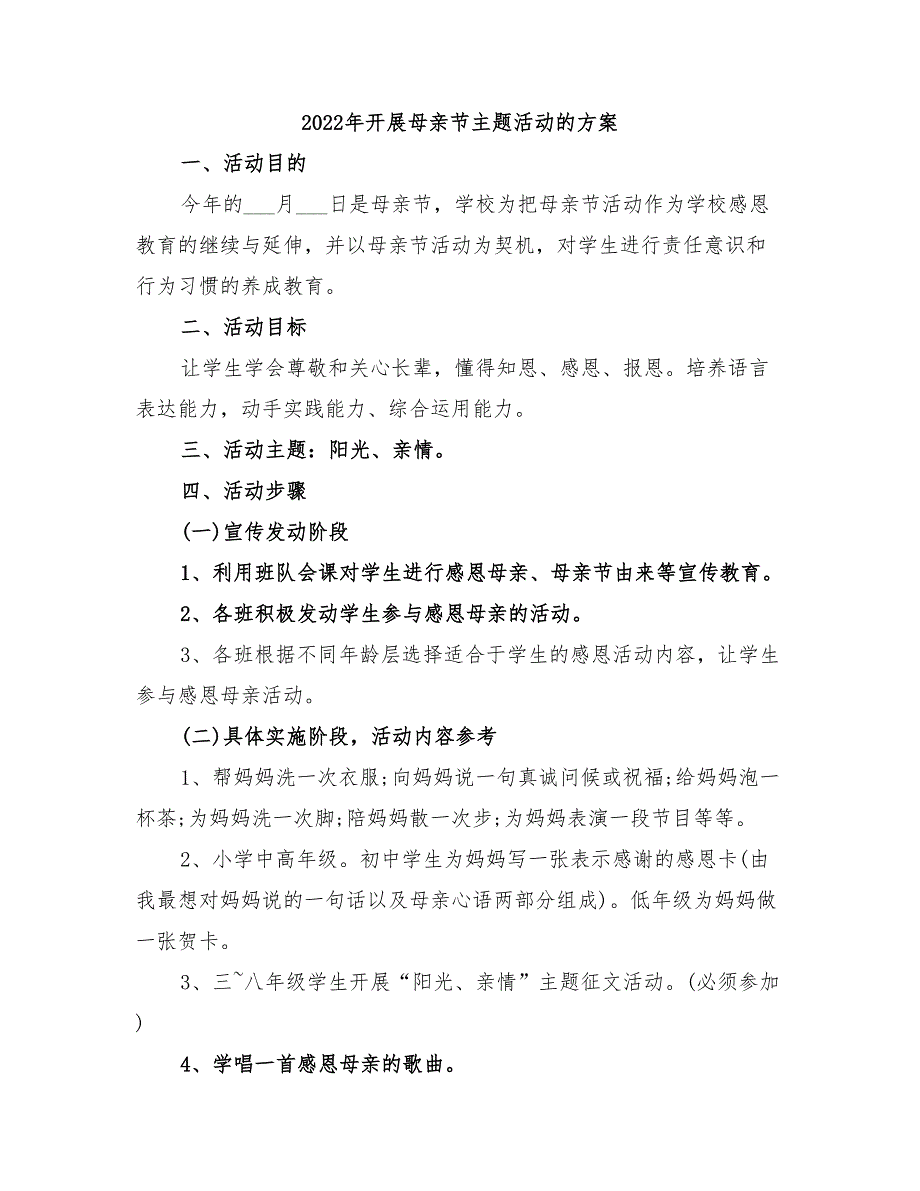 2022年开展母亲节主题活动的方案
一、活动目的
今年的___月___日是母亲节，学校为把母亲节活动作为学校感恩
教育的继续与延伸，并以母亲节活动为契机，对学生进行责任意识和
行为习惯的养成教育。
二、活动目标
让学生学会尊敬和关心长辈，懂得知恩、感恩、报恩。培养语言
表达能力，动手实践能力、综合运用能力。
三、活动主题：阳光、亲情。
四、活动步骤
(一)宣传发动阶段
1、利用班队会课对学生进行感恩母亲、母亲节由来等宣传教育。
2、各班积极发动学生参与感恩母亲的活动。
3、各班根据不同年龄层选择适合于学生的感恩活动内容，让学生
参与感恩母亲活动。
(二)具体实施阶段，活动内容参考
1、帮妈妈洗一次衣服;向妈妈说一句真诚问候或祝福;给妈妈泡一
杯茶;为妈妈洗一次脚;陪妈妈散一次步;为妈妈表演一段节目等等。
2、小学中高年级。初中学生为妈妈写一张表示感谢的感恩卡(由
我最想对妈妈说的一句话以及母亲心语两部分组成)。低年级为妈妈做
一张贺卡。
3、三~八年级学生开展“阳光、亲情”主题征文活动。(必须参加
)
4、学唱一首感恩母亲的歌曲。